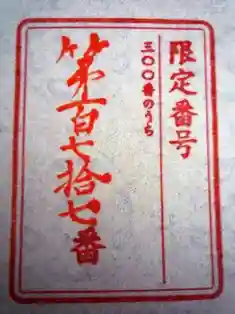 限定番号
三〇〇番のうち
第百七拾七番